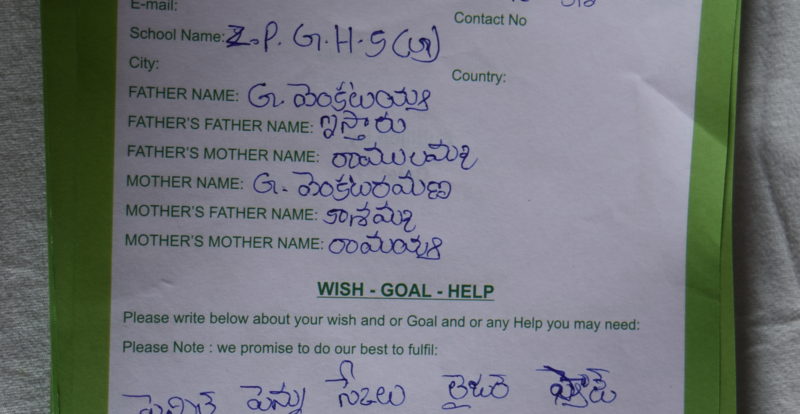 E-mail:
Contact No
School Name: Z.P.G.H.S
City:
Country:
FATHER NAME: G. వెంకటయ్య
FATHER'S FATHER NAME: ఇస్తారు
FATHER'S MOTHER NAME: రాములమ్మ
MOTHER NAME: G. వెంకటరమణ
MOTHER'S FATHER NAME: కాశమ్మ
MOTHER'S MOTHER NAME: రామయ్య
WISH - GOAL - HELP
Please write below about your wish and or Goal and or any Help you may need:
Please Note : we promise to do our best to fulfil:
పెన్ను